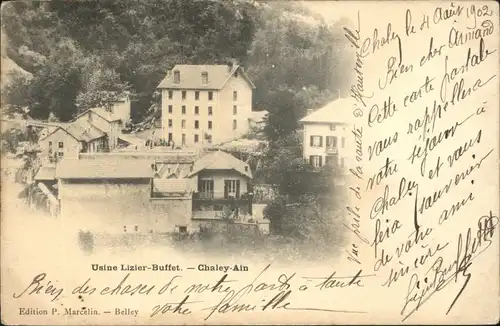 Chaley le 4 Août 1902
Bien cher Armand
Cette carte postale
vous rappellera
votre séjour à
Chaley et vous
fera souvenir
de votre ami
sincère
Vue prise de la route d'Hauteville
Usine Lizier-Buffet. — Chaley-Ain
Bien des choses de notre part à toute
votre famille
Edition P. Marcelin. — Belley